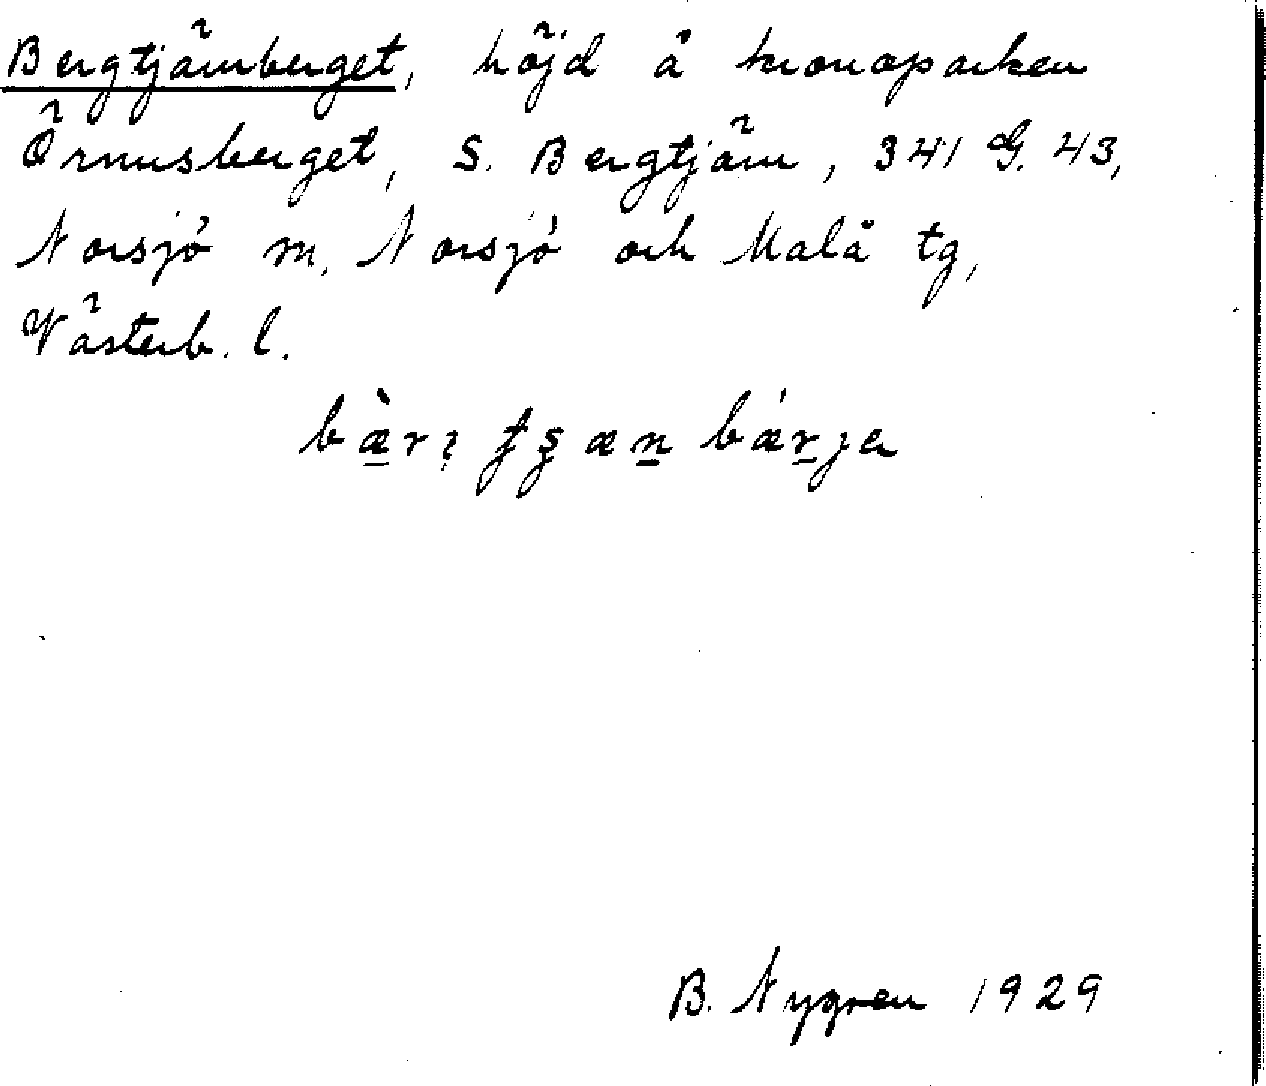 Bergtjärnberget, höjd å kronoparken
Örnusberget, S. Bergtjärn, 341 G. 43,
Norsjö sn, Norsjö och Malå tg,
Västerb. l.
B. Nygren 1929